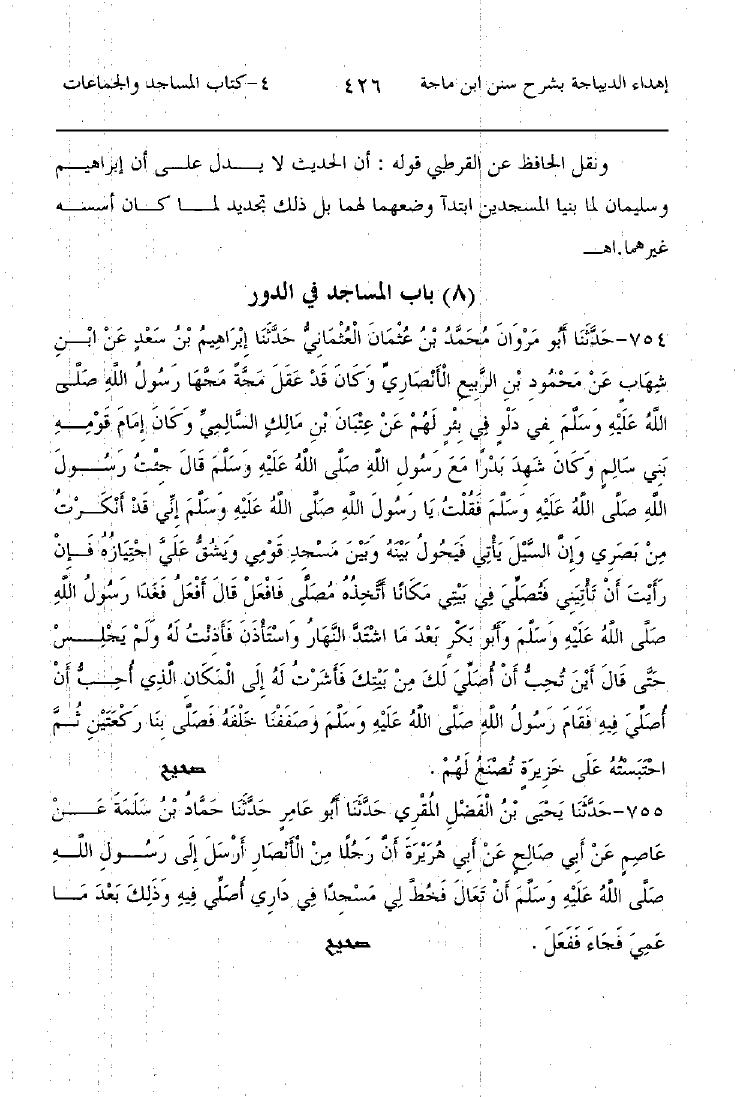 إهداء الديباجة بشرح سنن ابن ماجة ٤٢٦ ٤-كتاب المساجد والجماعات
ونقل الحافظ عن القرطبي قوله : أن الحديث لا يـــدل علـــى أن إبراهيـــم
وسليمان لما بنيا المسجدين ابتدآ وضعهما لهما بل ذلك تجديد لمـــا كـــان أسســـه
غيرهما.اهـ
(٨) باب المساجد في الدور
٧٥٤-حَدَّثَنَا أَبُو مَرْوَانَ مُحَمَّدُ بْنُ عُثْمَانَ الْعُثْمَانِيُّ حَدَّثَنَا إِبْرَاهِيمُ بْنُ سَعْدٍ عَنْ ابْـــنِ
شِهَابٍ عَنْ مَحْمُودِ بْنِ الرَّبِيعِ الْأَنْصَارِيِّ وَكَانَ قَدْ عَقَلَ مَجَّةً مَجَّهَا رَسُولُ اللَّهِ صَلَّـى
اللَّهُ عَلَيْهِ وَسَلَّمَ فِي دَلْوٍ فِي بِئْرٍ لَهُمْ عَنْ عِتْبَانَ بْنِ مَالِكٍ السَّالِمِيِّ وَكَانَ إِمَامَ قَوْمِـــهِ
بَنِي سَالِمٍ وَكَانَ شَهِدَ بَدْرًا مَعَ رَسُولِ اللَّهِ صَلَّى اللَّهُ عَلَيْهِ وَسَلَّمَ قَالَ جِئْتُ رَسُـــولَ
اللَّهِ صَلَّى اللَّهُ عَلَيْهِ وَسَلَّمَ فَقُلْتُ يَا رَسُولَ اللَّهِ صَلَّى اللَّهُ عَلَيْهِ وَسَلَّمَ إِنِّي قَدْ أَنْكَـــرْتُ
مِنْ بَصَرِي وَإِنَّ السَّيْلَ يَأْتِي فَيَحُولُ بَيْنَهُ وَبَيْنَ مَسْجِدِ قَوْمِي وَيَشُقُّ عَلَيَّ اجْتِيَازُهُ فَـــإِنْ
رَأَيْتَ أَنْ تَأْتِيَنِي فَتُصَلِّيَ فِي بَيْتِي مَكَانًا أَتَّخِذُهُ مُصَلًّى فَافْعَلْ قَالَ أَفْعَلُ فَغَدَا رَسُولُ اللَّهِ
صَلَّى اللَّهُ عَلَيْهِ وَسَلَّمَ وَأَبُو بَكْرٍ بَعْدَ مَا اشْتَدَّ النَّهَارُ وَاسْتَأْذَنَ فَأَذِنْتُ لَهُ وَلَمْ يَجْلِـــسْ
حَتَّى قَالَ أَيْنَ تُحِبُّ أَنْ أُصَلِّيَ لَكَ مِنْ بَيْتِكَ فَأَشَرْتُ لَهُ إِلَى الْمَكَانِ الَّذِي أُحِـــبُّ أَنْ
أُصَلِّيَ فِيهِ فَقَامَ رَسُولُ اللَّهِ صَلَّى اللَّهُ عَلَيْهِ وَسَلَّمَ وَصَفَفْنَا خَلْفَهُ فَصَلَّى بِنَا رَكْعَتَيْنِ ثُـــمَّ
احْتَبَسْتُهُ عَلَى خَزِيرَةٍ تُصْنَعُ لَهُمْ . صحيح
٧٥٥-حَدَّثَنَا يَحْيَى بْنُ الْفَضْلِ الْمُقْرِي حَدَّثَنَا أَبُو عَامِرٍ حَدَّثَنَا حَمَّادُ بْنُ سَلَمَةَ عَـــنْ
عَاصِمٍ عَنْ أَبِي صَالِحٍ عَنْ أَبِي هُرَيْرَةَ أَنَّ رَجُلًا مِنْ الْأَنْصَارِ أَرْسَلَ إِلَى رَسُـــولِ اللَّـــهِ
صَلَّى اللَّهُ عَلَيْهِ وَسَلَّمَ أَنْ تَعَالَ فَخُطَّ لِي مَسْجِدًا فِي دَارِي أُصَلِّي فِيهِ وَذَلِكَ بَعْدَ مَـــا
عَمِيَ فَجَاءَ فَفَعَلَ . صحيح